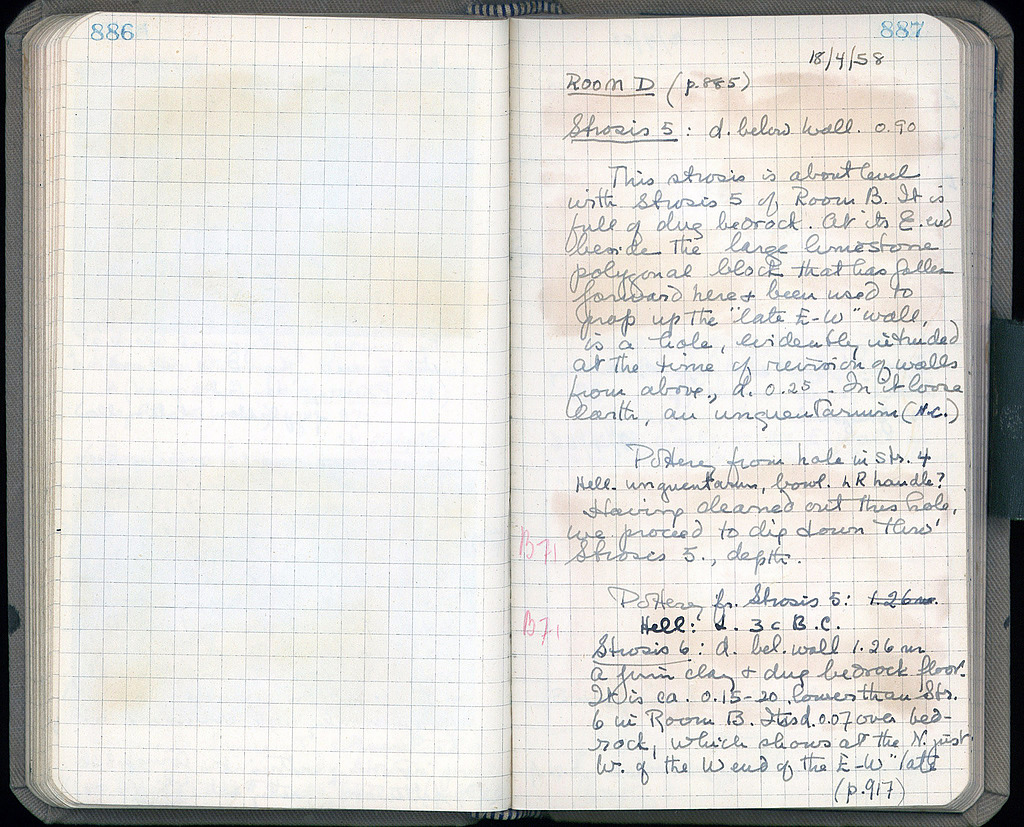 886
887
18/4/58
Room D (p.885)
Strosis 5: d. below wall. 0.90
This strosis is about level
with Strosis 5 of Room B. It is
full of dug bedrock. At its E. end
beside the large limestone
polygonal block that has fallen
forward here & been used to
prop up the "late E-W" wall,
is a hole, evidently intruded
at the time of revision of walls
from above., d. 0.25. In it loose
earth, an unguentarium (N.C.)
Pottery from hole in Str. 4
Hell. unguentarium, bowl. LR handle?
Having cleaned out this hole,
we proceed to dig down thro'
B71 Strosis 5., depth.
Pottery fr. Strosis 5: 1.26 m.
B71 Hell: d. 3 c B.C.
Strosis 6: d. bel. wall 1.26 m
a firm clay & dug bedrock floor.
It is ca. 0.15-20 lower than Str.
6 in Room B. Its d. 0.07 over bed-
rock, which shows at the N. just
W. of the W end of the E-W "late
(p.917)